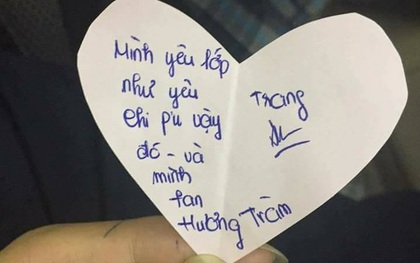 Mình yêu lớp
như yêu
chi pu vậy
đó - và
mình
fan
Hương Tràm
Trang